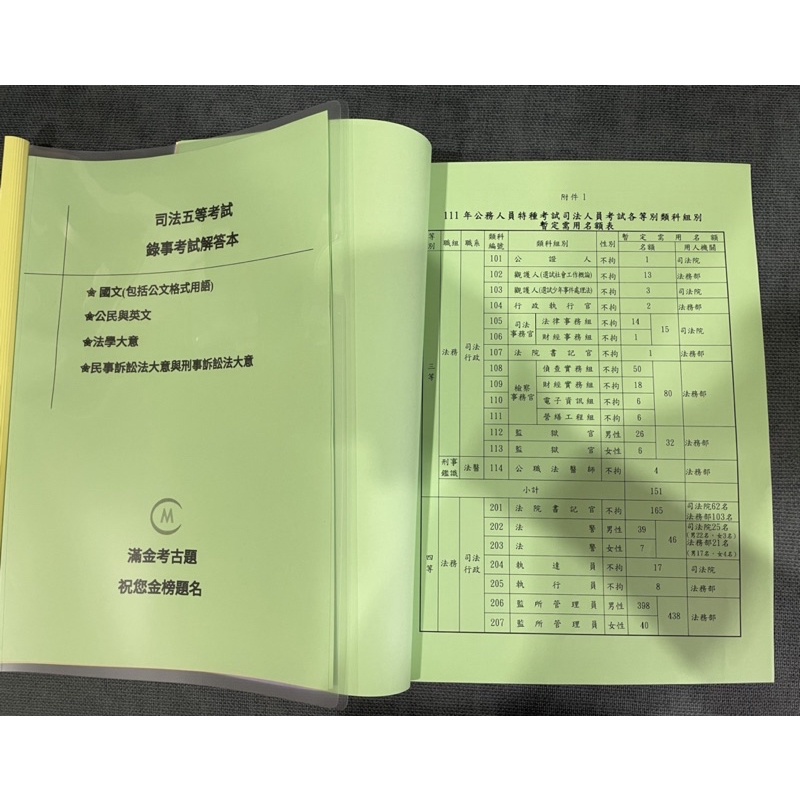 司法五等考試
錄事考試解答本
★國文(包括公文格式用語)
★公民與英文
★法學大意
★民事訴訟法大意與刑事訴訟法大意
M
滿金考古題
祝您金榜題名
附件 1
111 年公務人員特種考試司法人員考試各等別類科組別
暫定需用名額表
等別 職組 職系 類科編號 類科組別 性別 暫定需用名額
名額 用人機關
三等 法務 司法行政 101 公證人 不拘 1 司法院
102 觀護人(選試社會工作概論) 不拘 13 法務部
103 觀護人(選試少年事件處理法) 不拘 3 司法院
104 行政執行官 不拘 2 法務部
司法事務官 105 法律事務組 不拘 14 15 司法院
106 財經事務組 不拘 1
107 法院書記官 不拘 1 法務部
檢察事務官 108 偵查實務組 不拘 50 80 法務部
109 財經實務組 不拘 18
110 電子資訊組 不拘 6
111 營繕工程組 不拘 6
112 監獄官 男性 26 32 法務部
113 監獄官 女性 6
刑事鑑識 法醫 114 公職法醫師 不拘 4 法務部
小計 151
四等 法務 司法行政 201 法院書記官 不拘 165 司法院62名 法務部103名
202 法警 男性 39 46 司法院25名 (男22名、女3名)
203 法警 女性 7 法務部21名 (男17名、女4名)
204 執達員 不拘 17 司法院
205 執行員 不拘 8 法務部
206 監所管理員 男性 398 438 法務部
207 監所管理員 女性 40